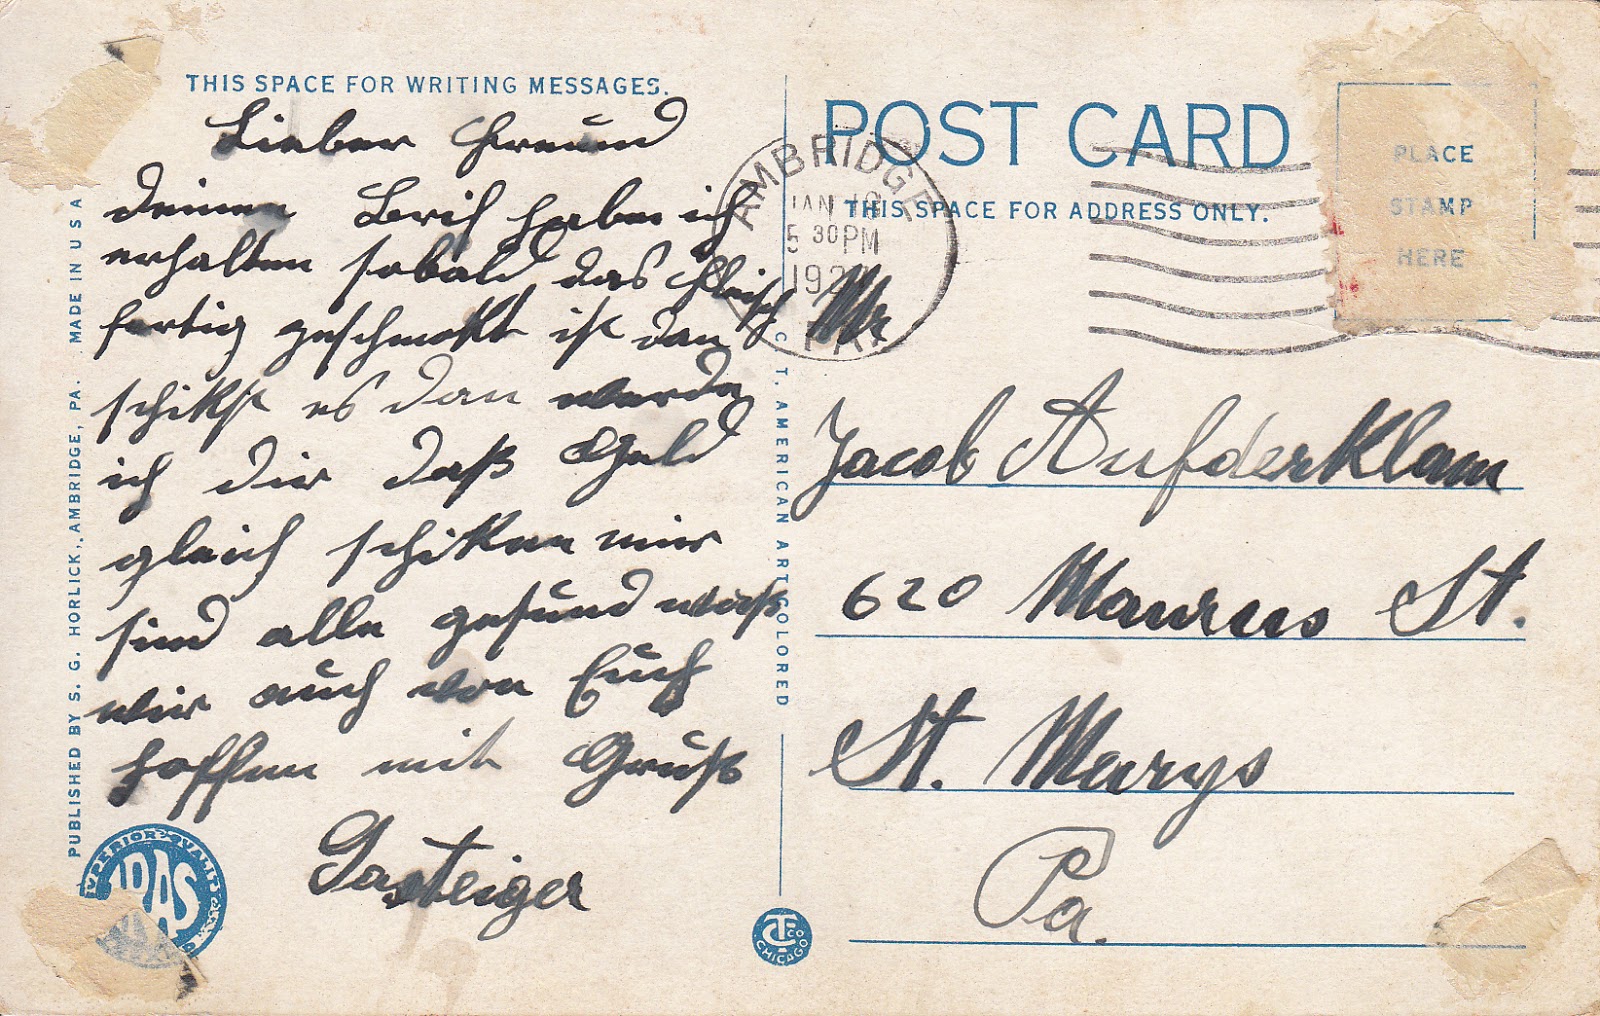 THIS SPACE FOR WRITING MESSAGES.
Lieber Freund
deinen Berif habe ich
erhalten sobald das Fleisch
fertig geschmokt ist dan
schikst es dan werde
ich dir daß Geld
gleich schiken mir
sind alle gesund waß
wir auch von Euch
hoffen mit Gruß
Gasteiger
PUBLISHED BY S. G. HORLICK, AMBRIDGE, PA. MADE IN U S A
C. T. AMERICAN ART COLORED
SUPERIOR QUALITY
C.T. CO CHICAGO
POST CARD
THIS SPACE FOR ADDRESS ONLY.
PLACE
STAMP
HERE
AMBRIDGE
JAN 18
5 30PM
PA.
Mr
Jacob Aufderklam
620 Maurus St.
St. Marys
Pa.